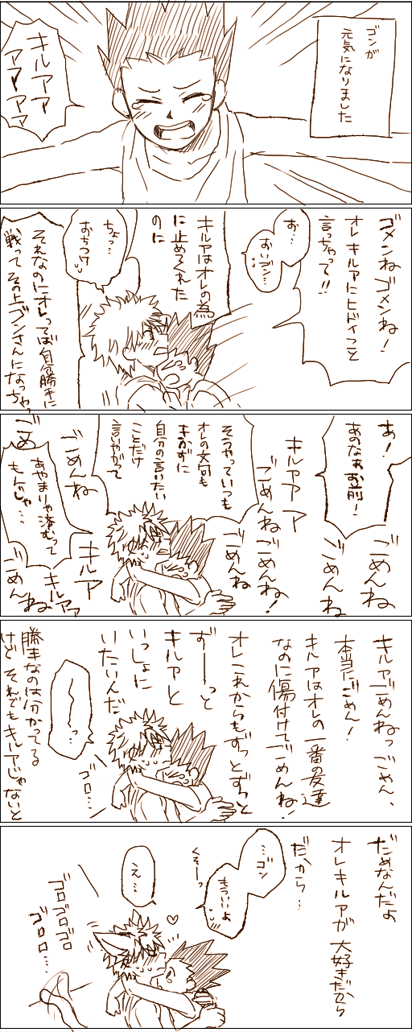 ゴンが
元気になりました
キルアァ
アァアァ
ゴメンね ゴメンね！
オレキルアにヒドイこと
言っちゃって!!
お…
おいゴン…
キルアはオレの為
に止めてくれた
のに
ちょっ…
おちつけ
それなのにオレってば自分勝手に
戦って その上ゴンさんになっちゃっ
あ！
あのなぁお前！
ごめんね
ごめんね
ごめんね
キルアァア
ごめんね
ごめんね！
そうやっていつも
オレの文句も
きかずに
自分の言いたい
ことだけ
言いやがって
ごめ
ごめんね
キルア
キルアァ
ごめんね
あやまりゃ済むって
もんじゃ…
キルアごめんねっごめん、
本当にごめん！
キルアはオレの一番の友達
なのに傷付けてごめんね！
オレこれからもずっとずっと
ずーーっと
キルアと
いっしょに
いたいんだ
…っ…
ゴロ…
勝手なのは分かってる
けど それでもキルアじゃないと
だめなんだよ
オレキルアが大好きだから
だから…
…ゴン
きついよ
くそーっ
え…
ゴロゴロゴロ
ゴロロ…